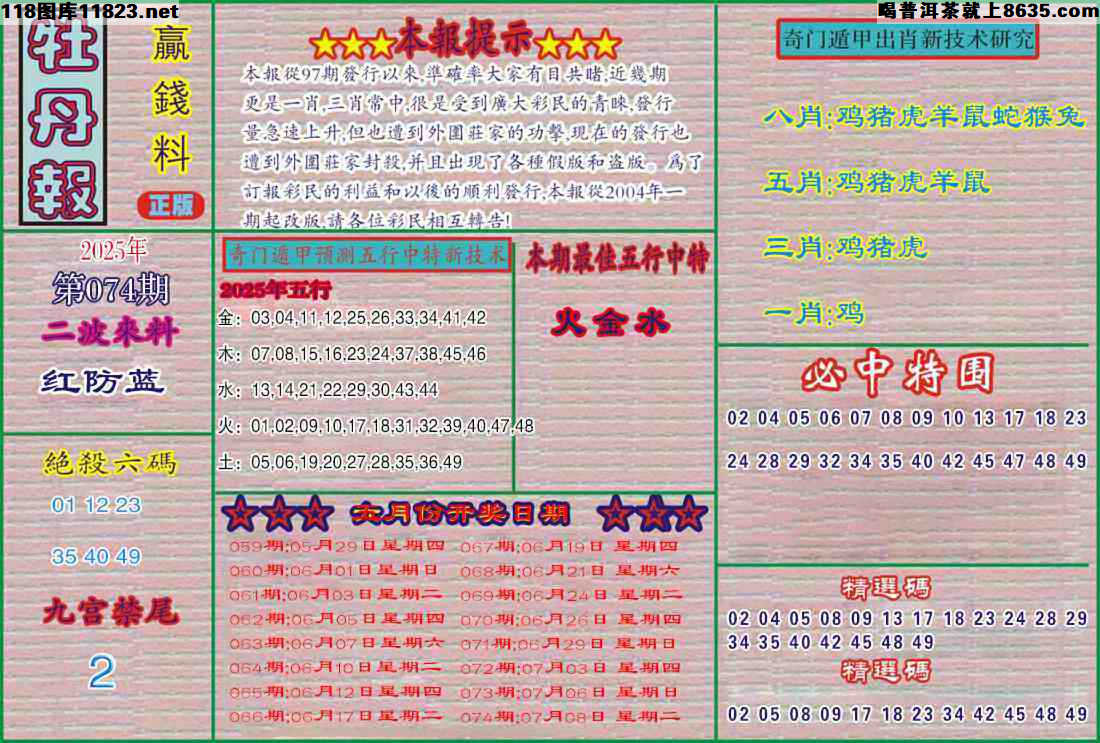 118图库11823.net
喝普洱茶就上8635.com
牡丹報
贏錢料
正版
★★★本報提示★★★
本報從97期發行以來,準確率大家有目共睹,近幾期
更是一肖,三肖常中,很是受到廣大彩民的青睞,發行
量急速上升,但也遭到外圍莊家的功擊,現在的發行也
遭到外圍莊家封殺,并且出現了各種假版和盗版。爲了
訂報彩民的利益和以後的順利發行,本報從2004年一
期起改版,請各位彩民相互轉告!
2025年
第074期
二波來料
红防蓝
絕殺六碼
01 12 23
35 40 49
九宫禁尾
2
奇门遁甲预测五行中特新技术
2025年五行
金：03,04,11,12,25,26,33,34,41,42
木：07,08,15,16,23,24,37,38,45,46
水：13,14,21,22,29,30,43,44
火：01,02,09,10,17,18,31,32,39,40,47,48
土：05,06,19,20,27,28,35,36,49
本期最佳五行中特
火金水
☆☆☆ 六月份开奖日期 ☆☆☆
059期:05月29日星期四 067期:06月19日 星期四
060期:06月01日星期日 068期:06月21日 星期六
061期:06月03日星期二 069期:06月24日 星期二
062期:06月05日星期四 070期:06月26日 星期四
063期:06月07日星期六 071期:06月29日 星期日
064期:06月10日星期二 072期:07月03日 星期四
065期:06月12日星期四 073期:07月06日 星期日
066期:06月17日星期二 074期:07月08日 星期二
奇门遁甲出肖新技术研究
八肖:鸡猪虎羊鼠蛇猴兔
五肖:鸡猪虎羊鼠
三肖:鸡猪虎
一肖:鸡
必中特围
02 04 05 06 07 08 09 10 13 17 18 23
24 28 29 32 34 35 40 42 45 47 48 49
精選碼
02 04 05 08 09 13 17 18 23 24 28 29
34 35 40 42 45 48 49
精選碼
02 05 08 09 17 18 23 34 42 45 48 49